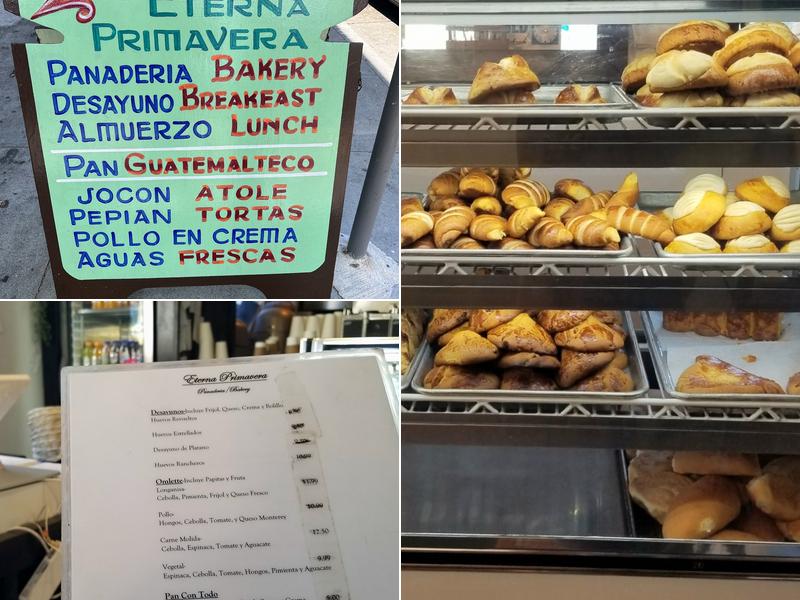 ETERNA
PRIMAVERA
PANADERIA BAKERY
DESAYUNO BREAKFAST
ALMUERZO LUNCH
PAN GUATEMALTECO
JOCON ATOLE
PEPIAN TORTAS
POLLO EN CREMA
AGUAS FRESCAS
Eterna Primavera
Panaderia/Bakery
Desayunos-Incluye Frijol, Queso, Crema y Bolillo
Huevos Revueltos
Huevos Estrellados
Desayuno de Platano
Huevos Rancheros
Omlette-Incluye Papitas y Fruta
Longaniza-
Cebolla, Pimienta, Frijol y Queso Fresco
Pollo-
Hongos, Cebolla, Tomate, y Queso Monterey
Carne Molida- 12.50
Cebolla, Espinaca, Tomate y Aguacate
Vegetal- 9.99
Espinaca, Cebolla, Tomate, Hongos, Pimienta y Aguacate
Pan Con Todo